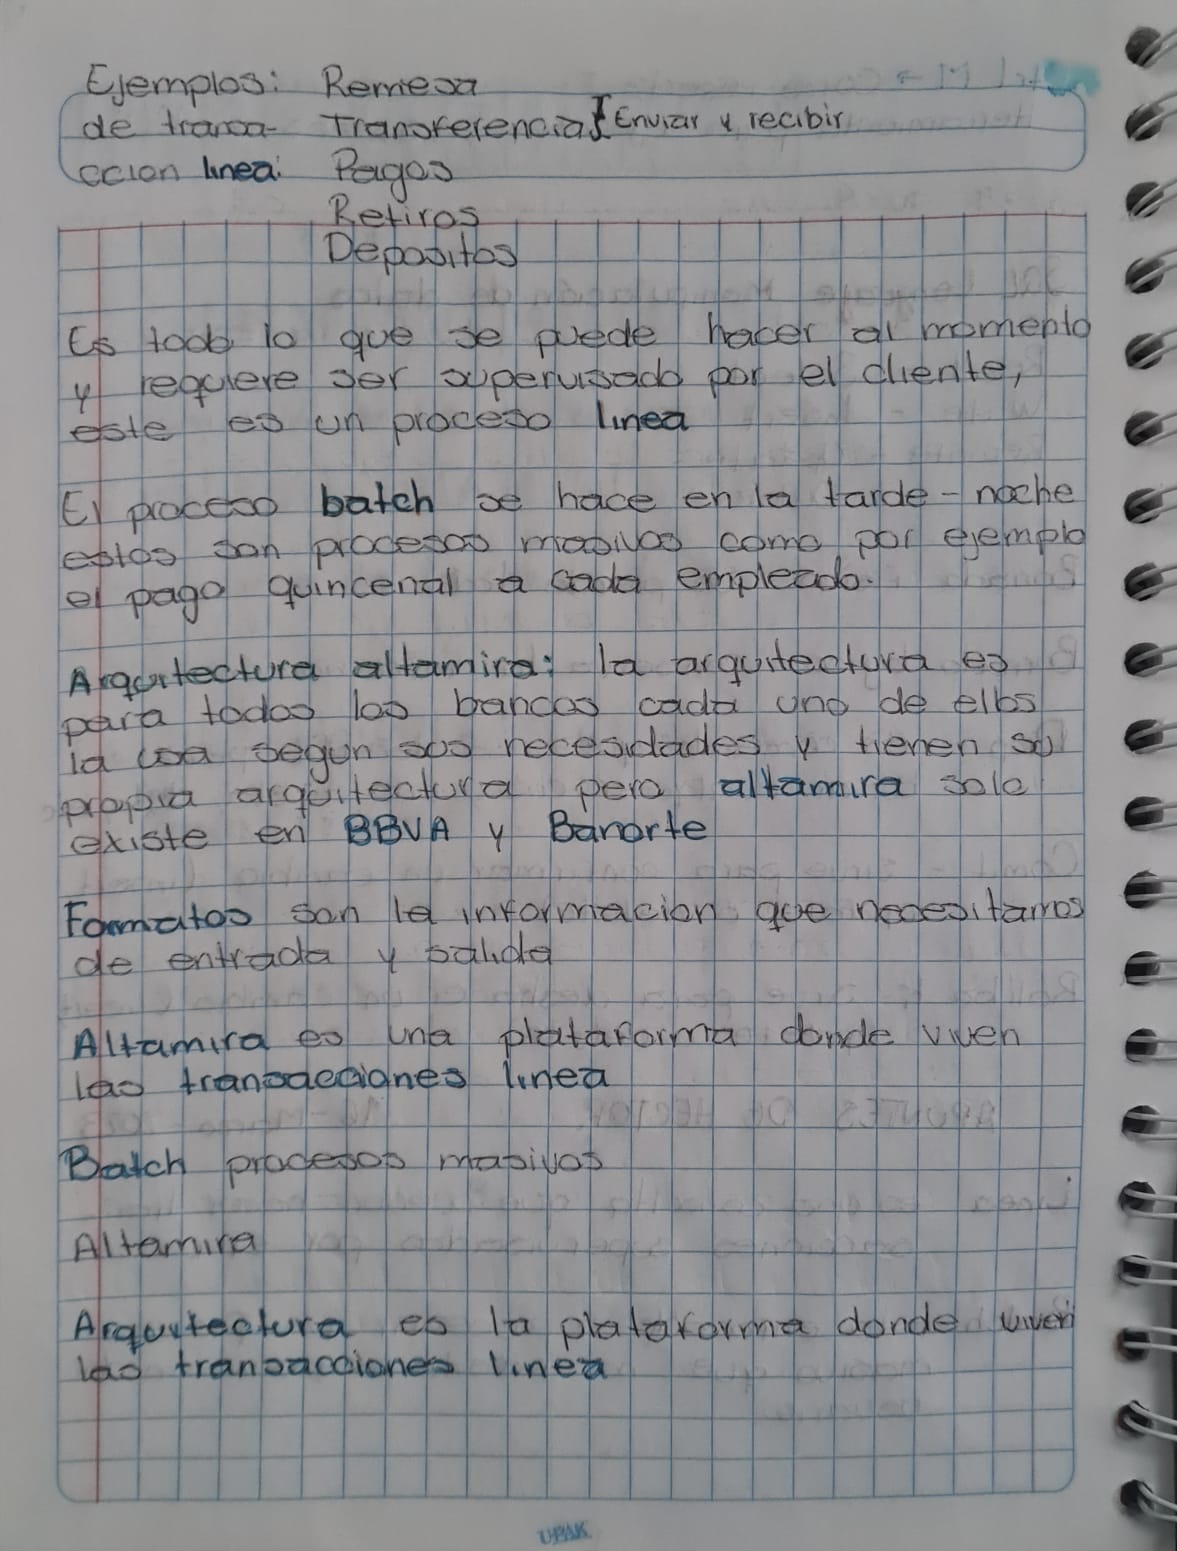 Ejemplos: Remesa
de transa- Transferencias Enviar y recibir
ccion linea: Pagos
Retiros
Depositos
Es todo lo que se puede hacer al momento
y requiere ser supervisado por el cliente,
este es un proceso linea
El proceso batch se hace en la tarde - noche
estos son procesos masivos como por ejemplo
el pago quincenal a cada empleado.
Arquitectura altamira: la arquitectura es
para todos los bancos cada uno de ellos
la usa segun sus necesidades y tienen su
propia arquitectura pero altamira solo
existe en BBVA y Banorte
Formatos son la informacion que necesitamos
de entrada y salida
Altamira es una plataforma donde viven
las transacciones linea
Batch procesos masivos
Altamira
Arquitectura es la plataforma donde viven
las transacciones linea
UPAK